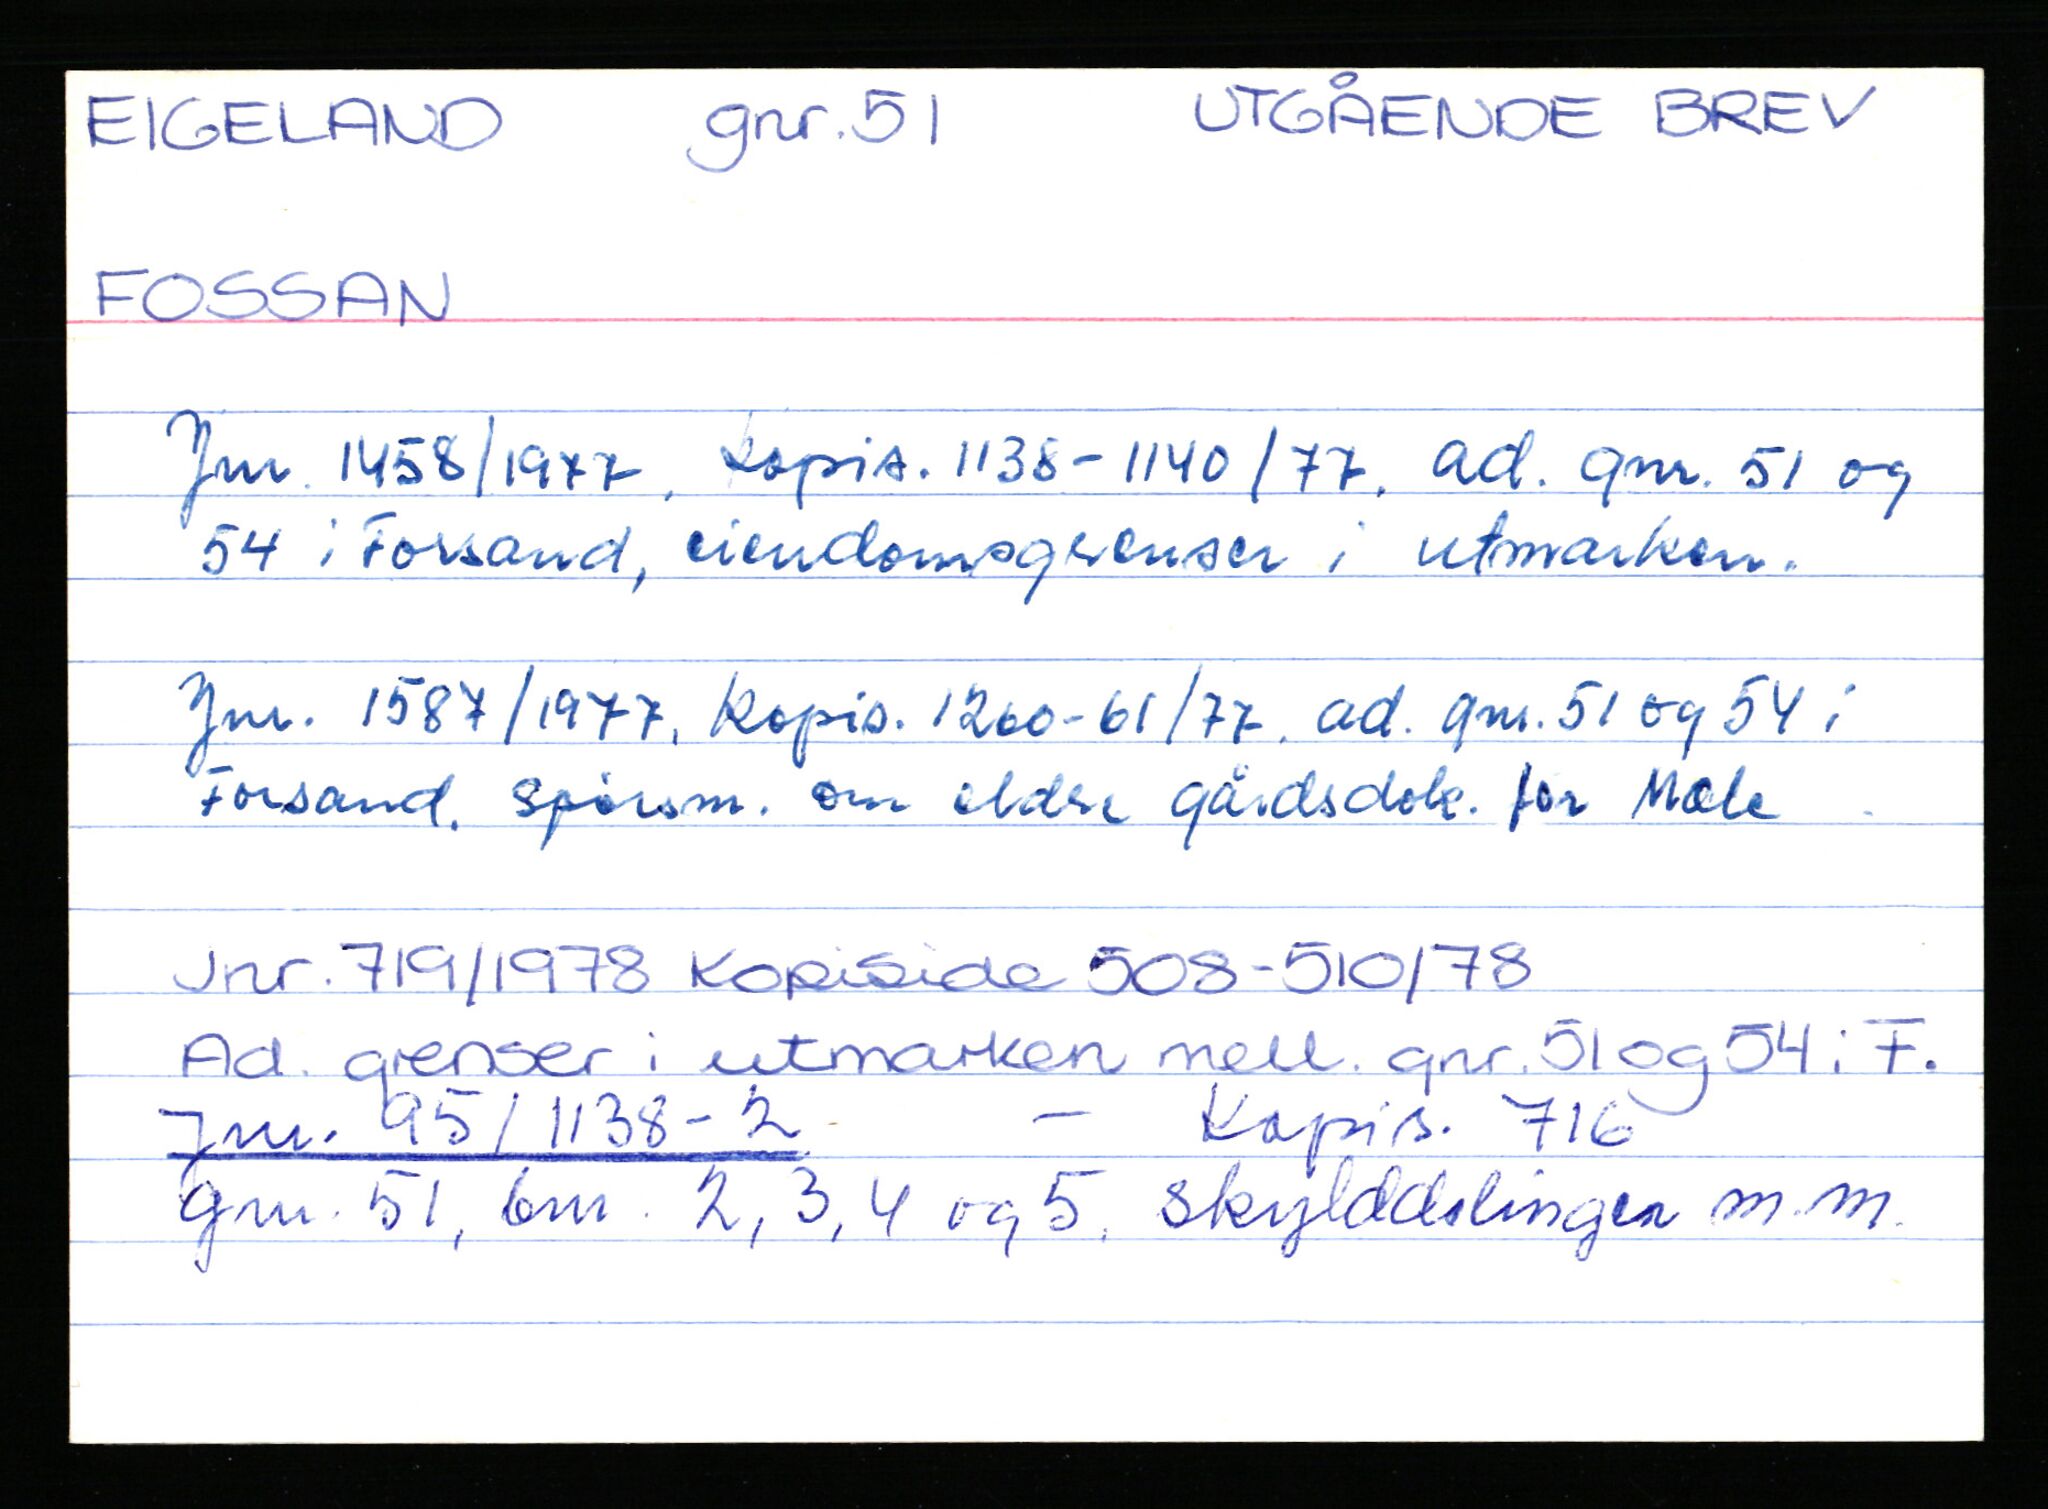 EIGELAND gnr. 51 UTGÅENDE BREV
FOSSAN
Jnr. 1458/1977, Kopis. 1138-1140/77. ad. gnr. 51 og
54 i Forsand, eiendomsgrenser i utmarken.
Jnr. 1587/1977, Kopis. 1260-61/77. ad. gnr. 51 og 54 i
Forsand. Spørsm. om eldre gårdsdok. for Mæle
Jnr. 719/1978 Kopiside 508-510/78
Ad. grenser i utmarken mell. gnr. 51 og 54 i F.
Jnr. 95/1138-2 - Kopis. 716
gnr. 51, bnr. 2, 3, 4 og 5, skylddelingen m.m.